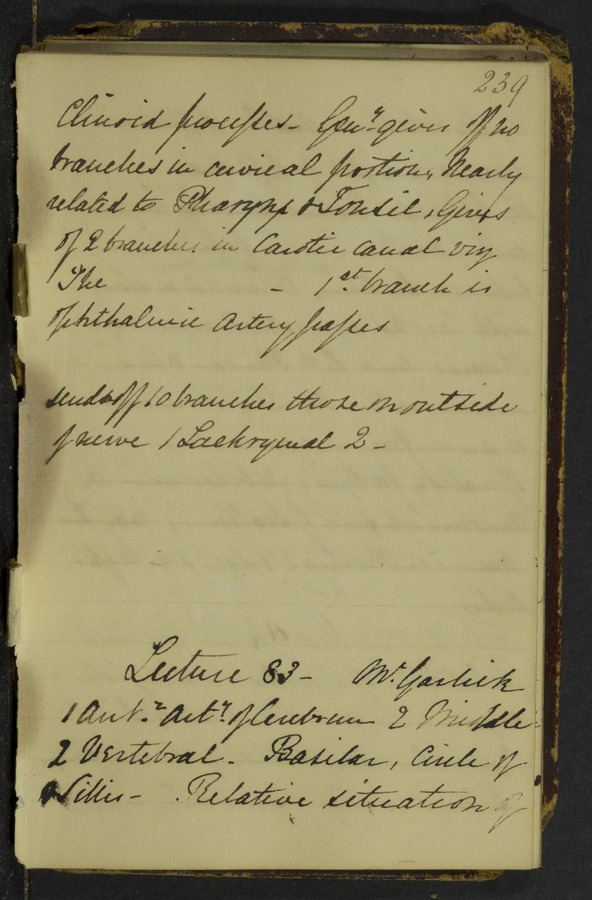 239
Clinoid processes - Gen.y gives of no
branches in cervical portion, Nearly
related to Pharynx & Tonsil, Gives
of 2 branches in Carotic canal viz
The - 1st branch is
ophthalmic artery passes
sends off 10 branches those on outside
of nerve 1 Lachrymal 2 -
Lecture 83 - Mr. Garlick
1 Ant.r Art.y of Cerebrum 2 Middle
2 Vertebral - Basilar, Circle of
Willis - Relative situation of